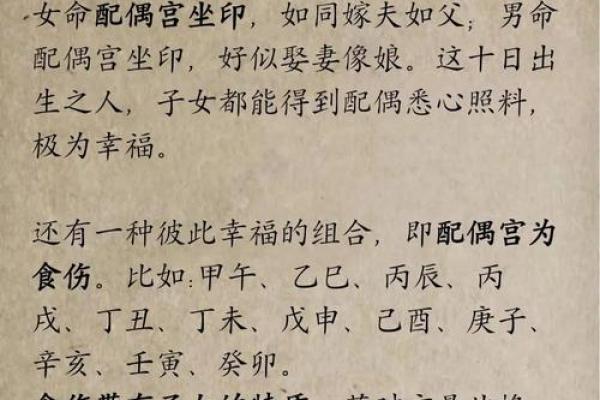 女命配偶宫坐印，如同嫁夫如父；男命
配偶宫坐印，好似娶妻像娘。这十日出
生之人，子女都能得到配偶悉心照料，
极为幸福。
还有一种彼此幸福的组合，即配偶宫为
食伤。比如:甲午、乙巳、丙辰、丙
戌、丁丑、丁未、戊申、己酉、庚子、
辛亥、壬寅、癸卯。